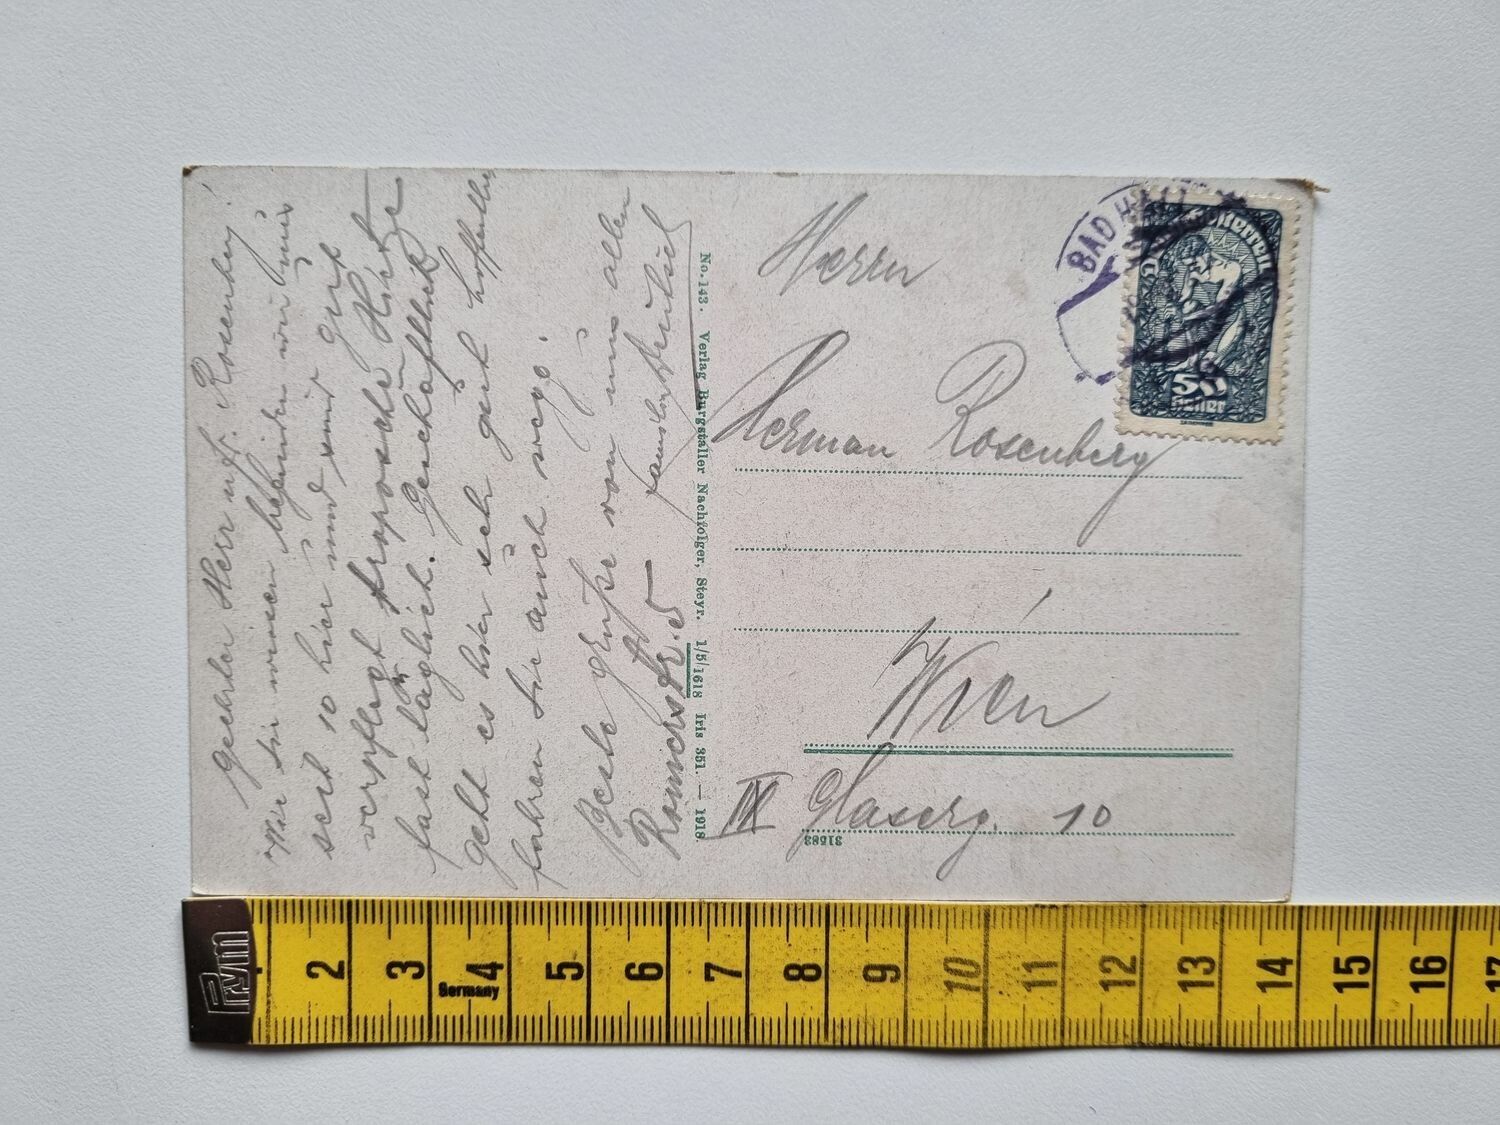 Geehrter Herr u. Fr. Rosenberg!
Wie Sie wissen befinden wir uns
seit 10 hier und sind gut
verpflegt troposche Hitze
fast täglich. Geschäftlich
geht es hier sehr gut hoffentlich
fahren Sie auch weg.
Beste Grüße von uns allen
Familie
No. 143. Verlag Burgstaller Nachfolger, Steyr. 1/5/1618 Iris 351. — 1918.
Herrn
Herman Rosenberg
Wien
IX Glaserg. 10
31583
BAD HALL
50
Heller
Prym
2 3 4 5 6 7 8 9 10 11 12 13 14 15 16 17
Germany